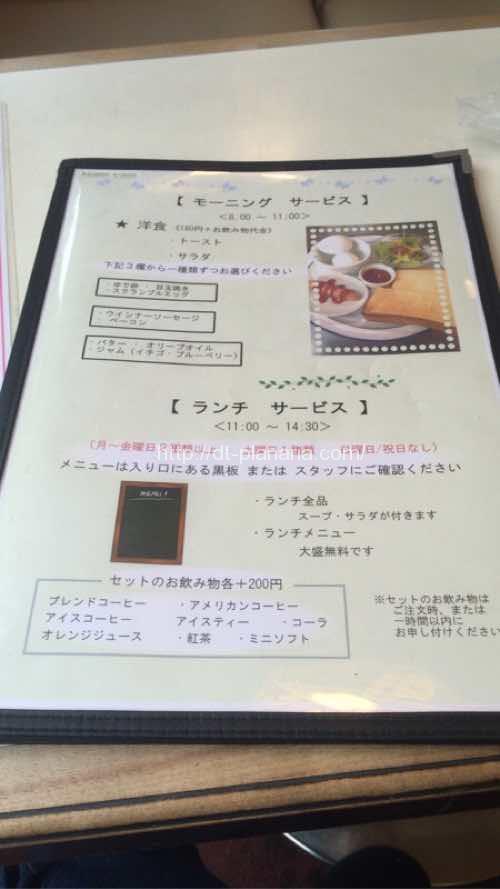 【 モーニング サービス 】
<8:00 ～ 11:00>
★ 洋食 (180円＋お飲み物代金)
・トースト
・サラダ
下記3種から一種類ずつお選びください
・ゆで卵 ・ 目玉焼き
・スクランブルエッグ
・ウインナーソーセージ
・ベーコン
・バター ・ オリーブオイル
・ジャム（イチゴ・ブルーベリー）
【 ランチ サービス 】
<11:00 ～ 14:30>
(月～金曜日 日曜日/祝日なし)
http://dt-planana.com/
メニューは入り口にある黒板 または スタッフにご確認ください
MENU!
・ランチ全品
スープ・サラダが付きます
・ランチメニュー
大盛無料です
セットのお飲み物各＋200円
ブレンドコーヒー ・アメリカンコーヒー
アイスコーヒー アイスティー ・コーラ
オレンジジュース ・紅茶 ・ミニソフト
※セットのお飲み物は
ご注文時、または
一時間以内に
お申し付けください